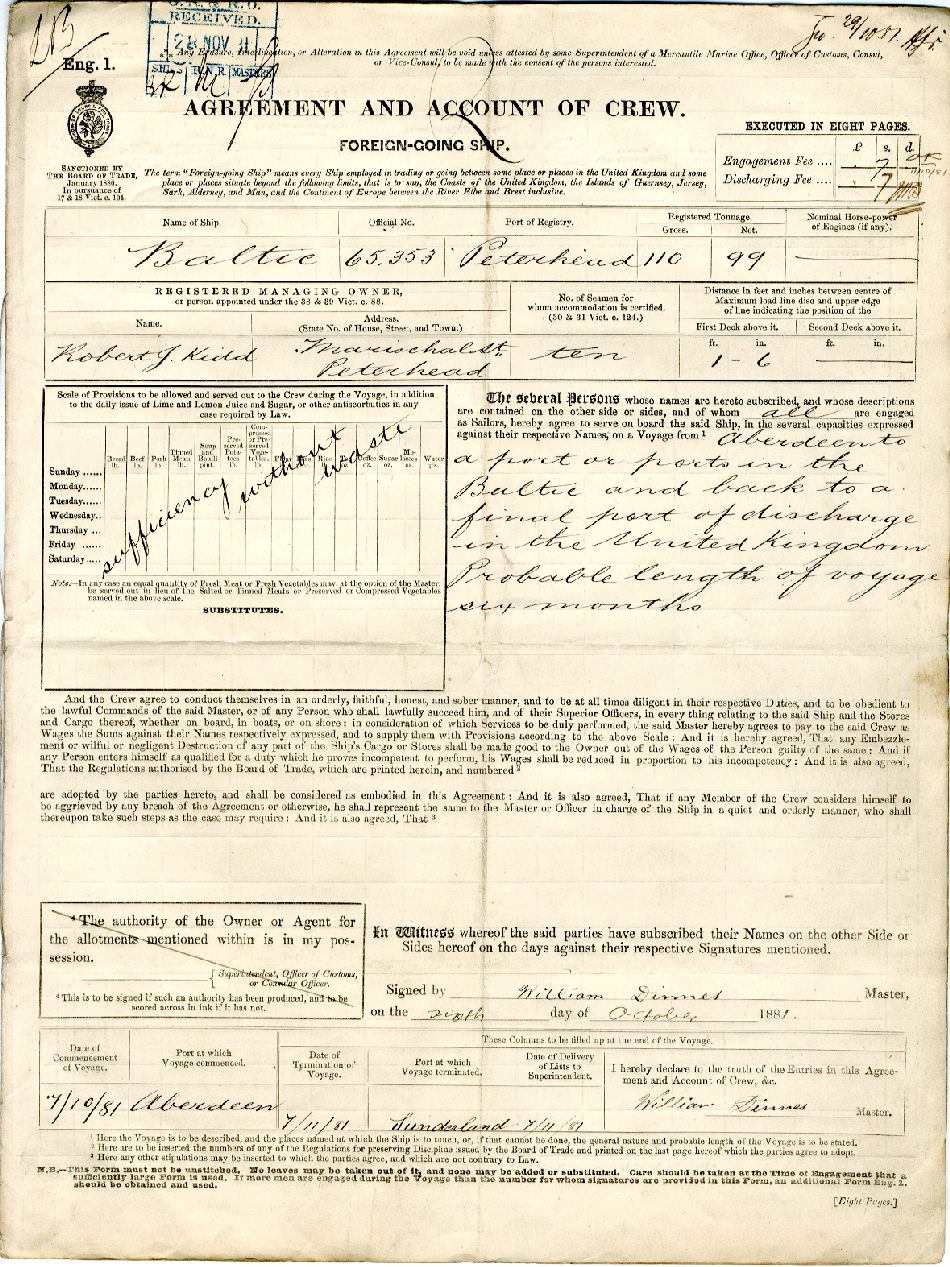 RECEIVED.
28 NOV
SHIPS R.N.R MASTERS
Any Erasure, Interlineation, or Alteration in this Agreement will be void unless attested by some Superintendent of a Mercantile Marine Office, Officer of Customs, Consul,
or Vice-Consul, to be made with the consent of the persons interested.
Eng. 1.
AGREEMENT AND ACCOUNT OF CREW.
FOREIGN-GOING SHIP.
SANCTIONED BY
THE BOARD OF TRADE,
January 1880.
In pursuance of
17 & 18 Vict. c. 104.
The term "Foreign-going Ship" means every Ship employed in trading or going between some place or places in the United Kingdom and some
place or places situate beyond the following limits, that is to say, the Coasts of the United Kingdom, the Islands of Guernsey, Jersey,
Sark, Alderney, and Man, and the Continent of Europe between the River Elbe and Brest inclusive.
EXECUTED IN EIGHT PAGES.
£ s. d.
Engagement Fee .... 7
Discharging Fee .... 7
Name of Ship. Official No. Port of Registry. Registered Tonnage. Nominal Horse-power
Gross. Net. of Engines (if any).
Baltic 65,353 Peterhead 110 99
REGISTERED MANAGING OWNER,
or person appointed under the 38 & 39 Vict. c. 88.
Name. Address.
(State No. of House, Street, and Town.)
No. of Seamen for
whom accommodation is certified.
(30 & 31 Vict. c. 124.)
Distance in feet and inches between centre of
Maximum load line disc and upper edge
of line indicating the position of the
First Deck above it. Second Deck above it.
ft. in. ft. in.
Robert J. Kidd Marischal St. ten 1 - 6
Peterhead
Scale of Provisions to be allowed and served out to the Crew during the Voyage, in addition
to the daily issue of Lime and Lemon Juice and Sugar, or other antiscorbutics in any
case required by Law.
Bread lb. Beef lb. Pork lb. Tinned Meat lb. Soup and Bouilli pint. Preserved Potatoes lb. Compressed or Preserved Vegetables. lb. Rice Coffee oz. Sugar oz. Molasses oz. Water
Sunday ......
Monday ......
Tuesday ......
Wednesday ...
Thursday ....
Friday ......
Saturday ....
sufficiency without waste
Note.—In any case an equal quantity of Fresh Meat or Fresh Vegetables may, at the option of the Master,
be served out in lieu of the Salted or Tinned Meats or Preserved or Compressed Vegetables
named in the above scale.
SUBSTITUTES.
The several Persons whose names are hereto subscribed, and whose descriptions
are contained on the other side or sides, and of whom all are engaged
as Sailors, hereby agree to serve on board the said Ship, in the several capacities expressed
against their respective Names, on a Voyage from ¹ Aberdeen to
a port or ports in the
Baltic and back to a
final port of discharge
in the United Kingdom
Probable length of voyage
six months
And the Crew agree to conduct themselves in an orderly, faithful, honest, and sober manner, and to be at all times diligent in their respective Duties, and to be obedient to
the lawful Commands of the said Master, or of any Person, who shall lawfully succeed him, and of their Superior Officers, in every thing relating to the said Ship and the Stores
and Cargo thereof, whether on board, in boats, or on shore: in consideration of which Services to be duly performed, the said Master hereby agrees to pay to the said Crew as
Wages the Sums against their Names respectively expressed, and to supply them with Provisions according to the above Scale: And it is hereby agreed, That any Embezzle-
ment or wilful or negligent Destruction of any part of the Ship's Cargo or Stores shall be made good to the Owner out of the Wages of the Person guilty of the same: And if
any Person enters himself as qualified for a duty which he proves incompetent to perform, his Wages shall be reduced in proportion to his incompetency: And it is also agreed,
That the Regulations authorised by the Board of Trade, which are printed herein, and numbered ²
are adopted by the parties hereto, and shall be considered as embodied in this Agreement: And it is also agreed, That if any Member of the Crew considers himself to
be aggrieved by any breach of the Agreement or otherwise, he shall represent the same to the Master or Officer in charge of the Ship in a quiet and orderly manner, who shall
thereupon take such steps as the case may require: And it is also agreed, That ³
⁴ The authority of the Owner or Agent for
the allotments mentioned within is in my pos-
session.
Superintendent, Officer of Customs,
or Consular Officer.
⁴ This is to be signed if such an authority has been produced, and to be
scored across in ink if it has not.
In Witness whereof the said parties have subscribed their Names on the other Side or
Sides hereof on the days against their respective Signatures mentioned.
Signed by William Dinnes Master,
on the sixth day of October 1881.
These Columns to be filled up at the end of the Voyage.
Date of
Commencement
of Voyage.
Port at which
Voyage commenced.
Date of
Termination of
Voyage.
Port at which
Voyage terminated.
Date of Delivery
of Lists to
Superintendent.
I hereby declare to the truth of the Entries in this Agree-
ment and Account of Crew, &c.
7/10/81 Aberdeen 7/11/81 Sunderland 7/11/81 William Dinnes Master.
¹ Here the Voyage is to be described, and the places named at which the Ship is to touch, or, if that cannot be done, the general nature and probable length of the Voyage is to be stated.
² Here are to be inserted the numbers of any of the Regulations for preserving Discipline issued by the Board of Trade and printed on the last page hereof which the parties agree to adopt.
³ Here any other stipulations may be inserted to which the parties agree, and which are not contrary to Law.
N.B.—This Form must not be unstitched. No leaves may be taken out of it, and none may be added or substituted. Care should be taken at the Time of Engagement that a
sufficiently large Form is used. If more men are engaged during the Voyage than the number for whom signatures are provided in this Form, an additional Form Eng. 1.
should be obtained and used.
[Eight Pages.]